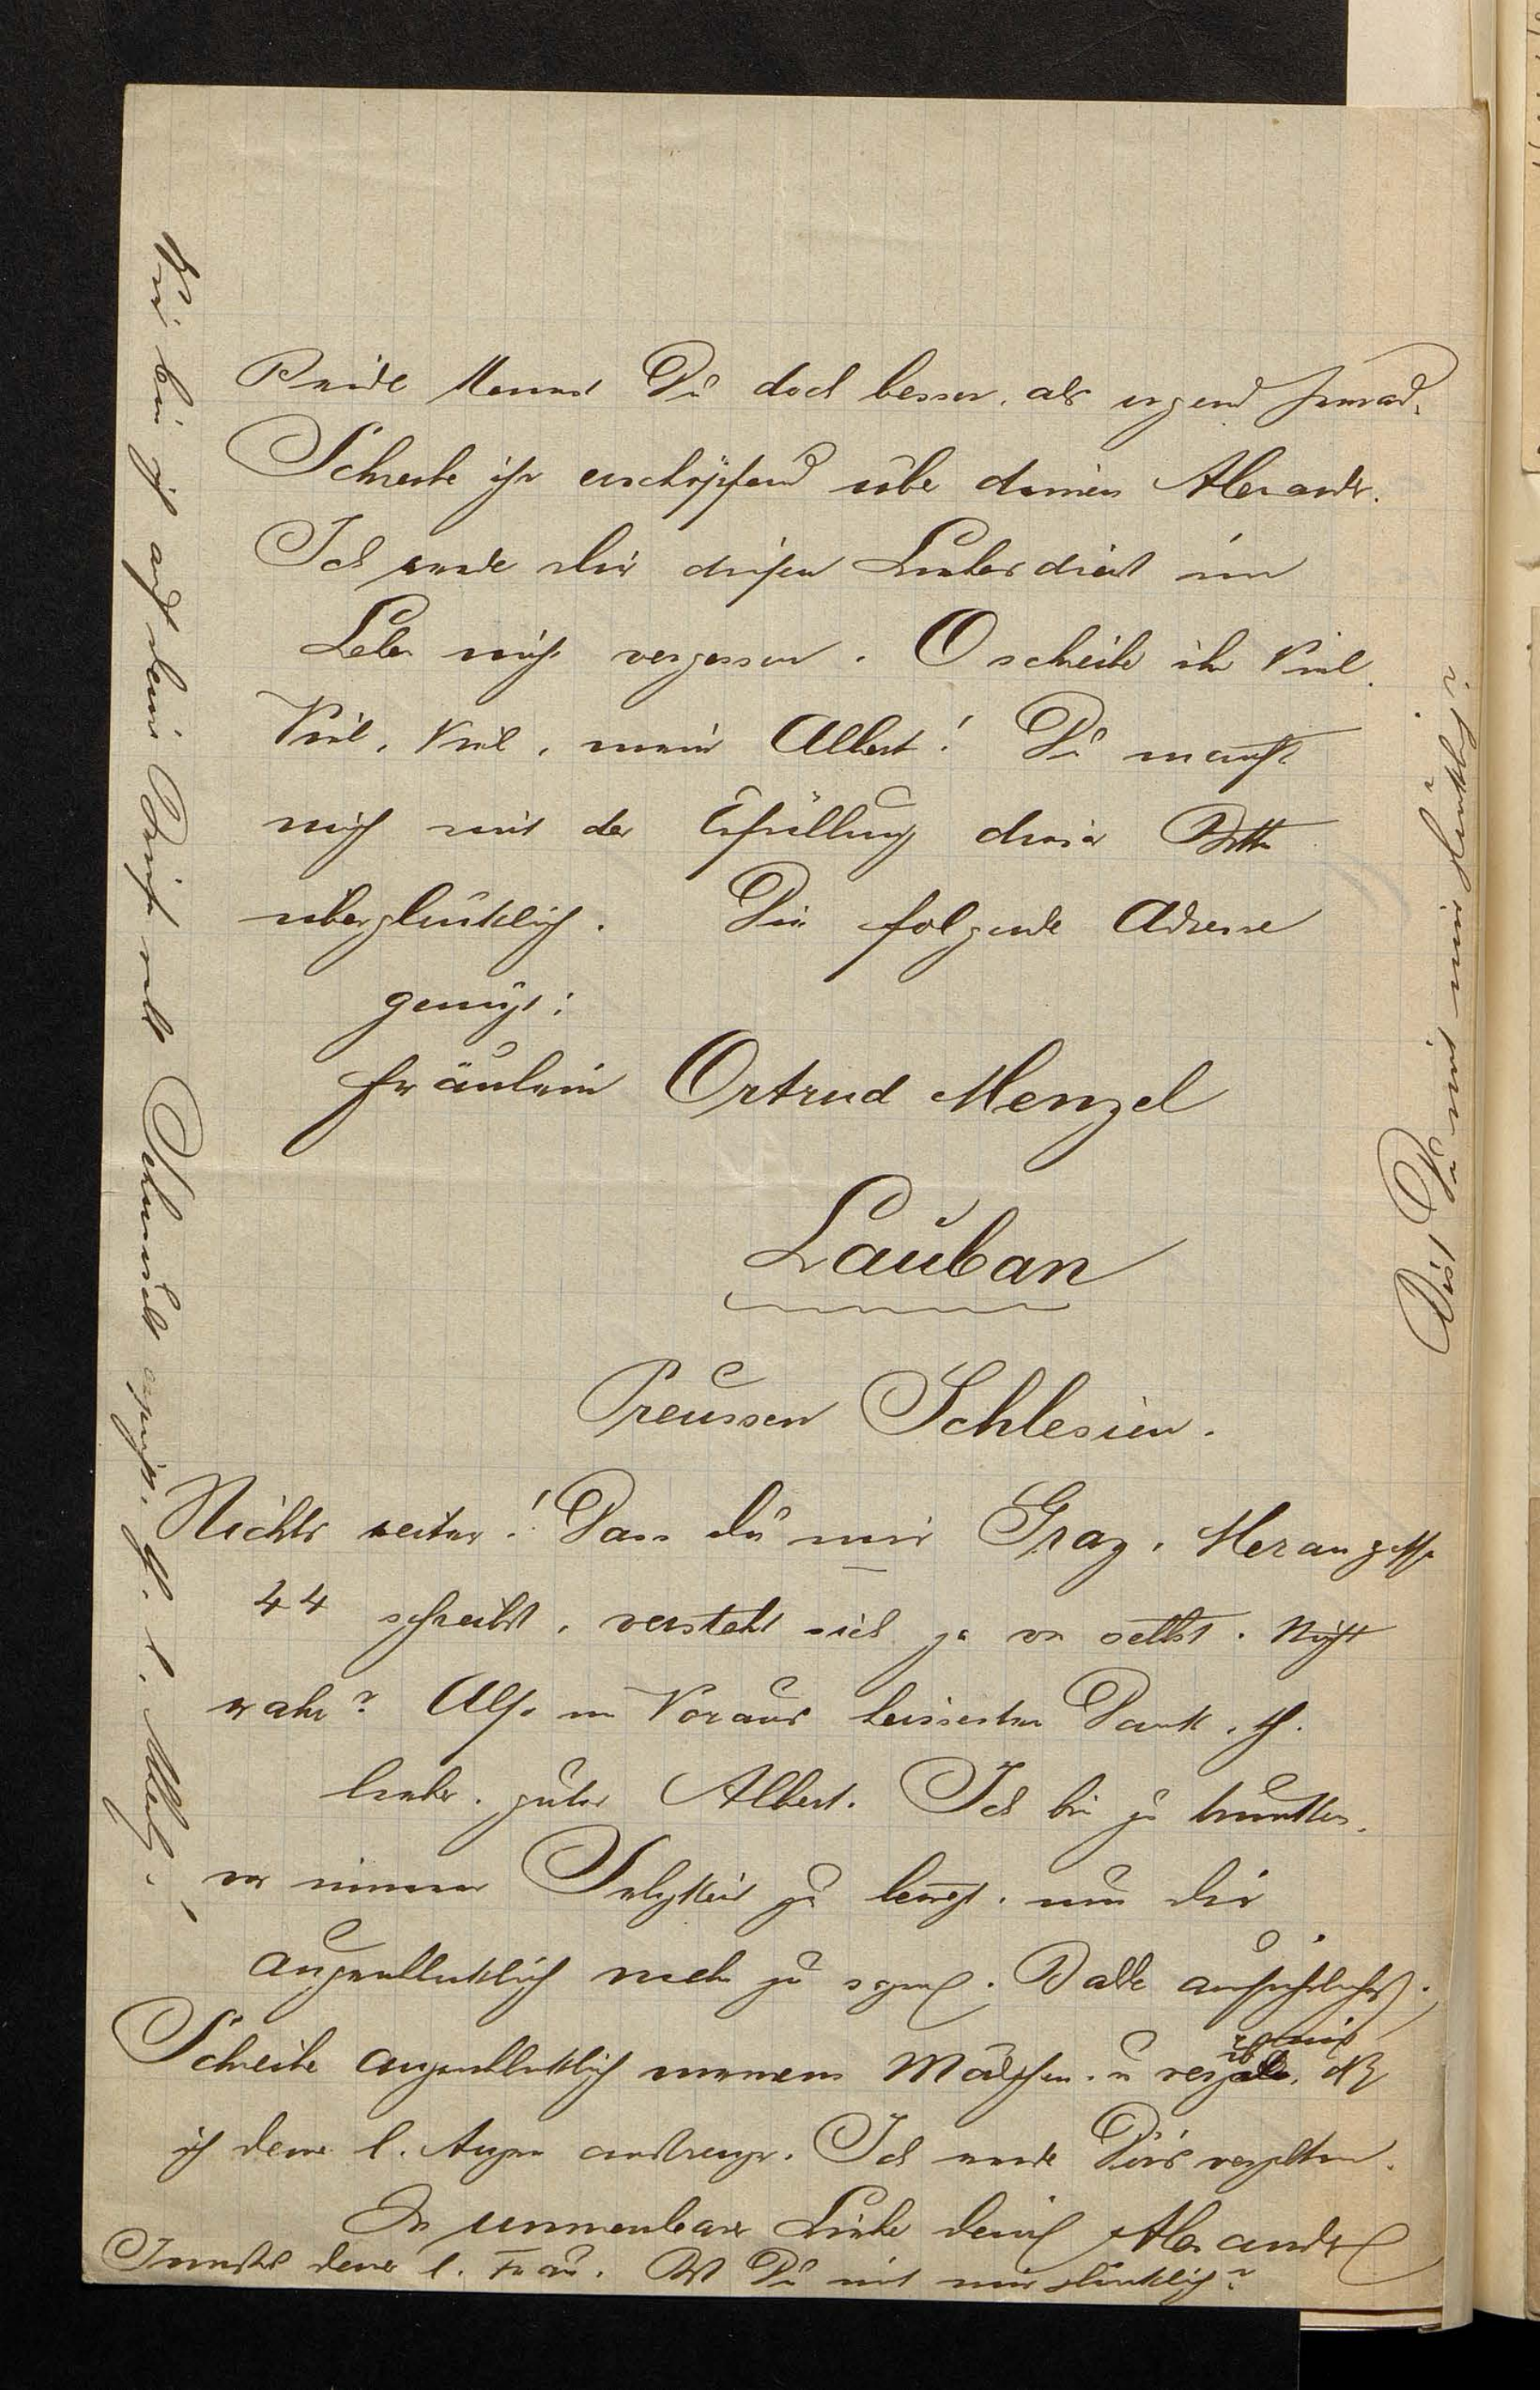 Beide kennst Du doch besser, als irgend Jemand.
Schreibe ihr erschöpfend über deinen Alexander.
Ich werde dir diesen Liebesdienst im
Leben nicht vergessen. O schreibe ihr Viel,
Viel, Viel, mein Albert! Du machst
mich mit der Erfüllung dieser Bitte
überglücklich. Die folgende Adresse
genügt:
Fräulein Ortrud Menzel
Lauban
Preussen Schlesien.
Nichts weiter! Dass du mir Graz, Merangasse
44 schreibst, versteht sich ja von selbst. Nicht
wahr? Also im Voraus heissesten Dank,
lieber, guter Albert. Ich bin zu trunken,
vor innerer Seligkeit zu bewegt, um dir
augenblicklich mehr zu sagen. Balde ausführlicher.
Schreibe augenblicklich meinem Mädchen u verzeih es mir, dß
ich deine l. Augen anstrenge. Ich werde Dir's vergelten.
In unnennbarer Liebe dein Alexander
Innigstes deiner l. Frau. Bist Du mit mir glücklich?
Wie bin ich auf deine Briefe voll Sehnsucht
Bist Du mit mir glücklich?